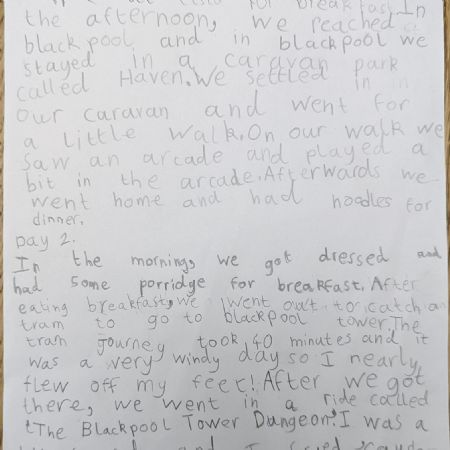 for breakfast. In
the afternoon, we reached
blackpool and in blackpool we
stayed in a caravan park
called Haven. We settled in in
our caravan and went for
a little walk. On our walk we
saw an arcade and played a
bit in the arcade. Afterwards we
went home and had noodles for
dinner.
Day 2.
In the morning, we got dressed and
had some porridge for breakfast. After
eating breakfast, we went out to catch a
tram to go to blackpool tower. The
tram journey took 40 minutes and it
was a very windy day so I nearly
flew off my feet! After we got
there, we went in a ride called
"The Blackpool Tower Dungeon". I was a